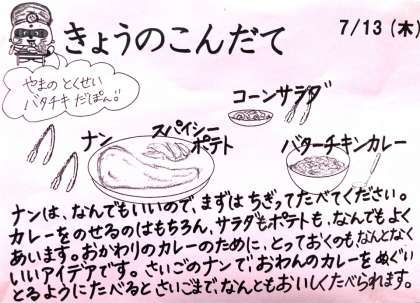 きょうのこんだて
7/13(木)
やまの とくせい
バタチキ だぽん!!
コーンサラダ
ナン
スパイシー
ポテト
バターチキンカレー
ナンは、なんでもいいので、まずは ちぎってたべてください。
カレーをのせるのはもちろん、サラダもポテトも、なんでもよく
あいます。おかわりのカレーのために、とっておくのも なんとなく
いいアイデアです。さいごのナンで、おわんのカレーを ぬぐい
とるようにたべると さいごまで、なんとも おいしくたべられます。